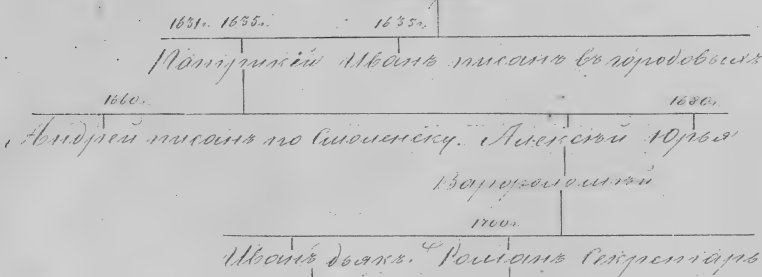 1631г. 1635г. 1635г.
Патрикѣй Иванъ писанъ въ городовыхъ
1660г. 1680г.
Андрей писанъ по Смоленску. Алексѣй Юрья
Варфоломѣй
1700г.
Иванъ дьякъ. Романъ Секретарь